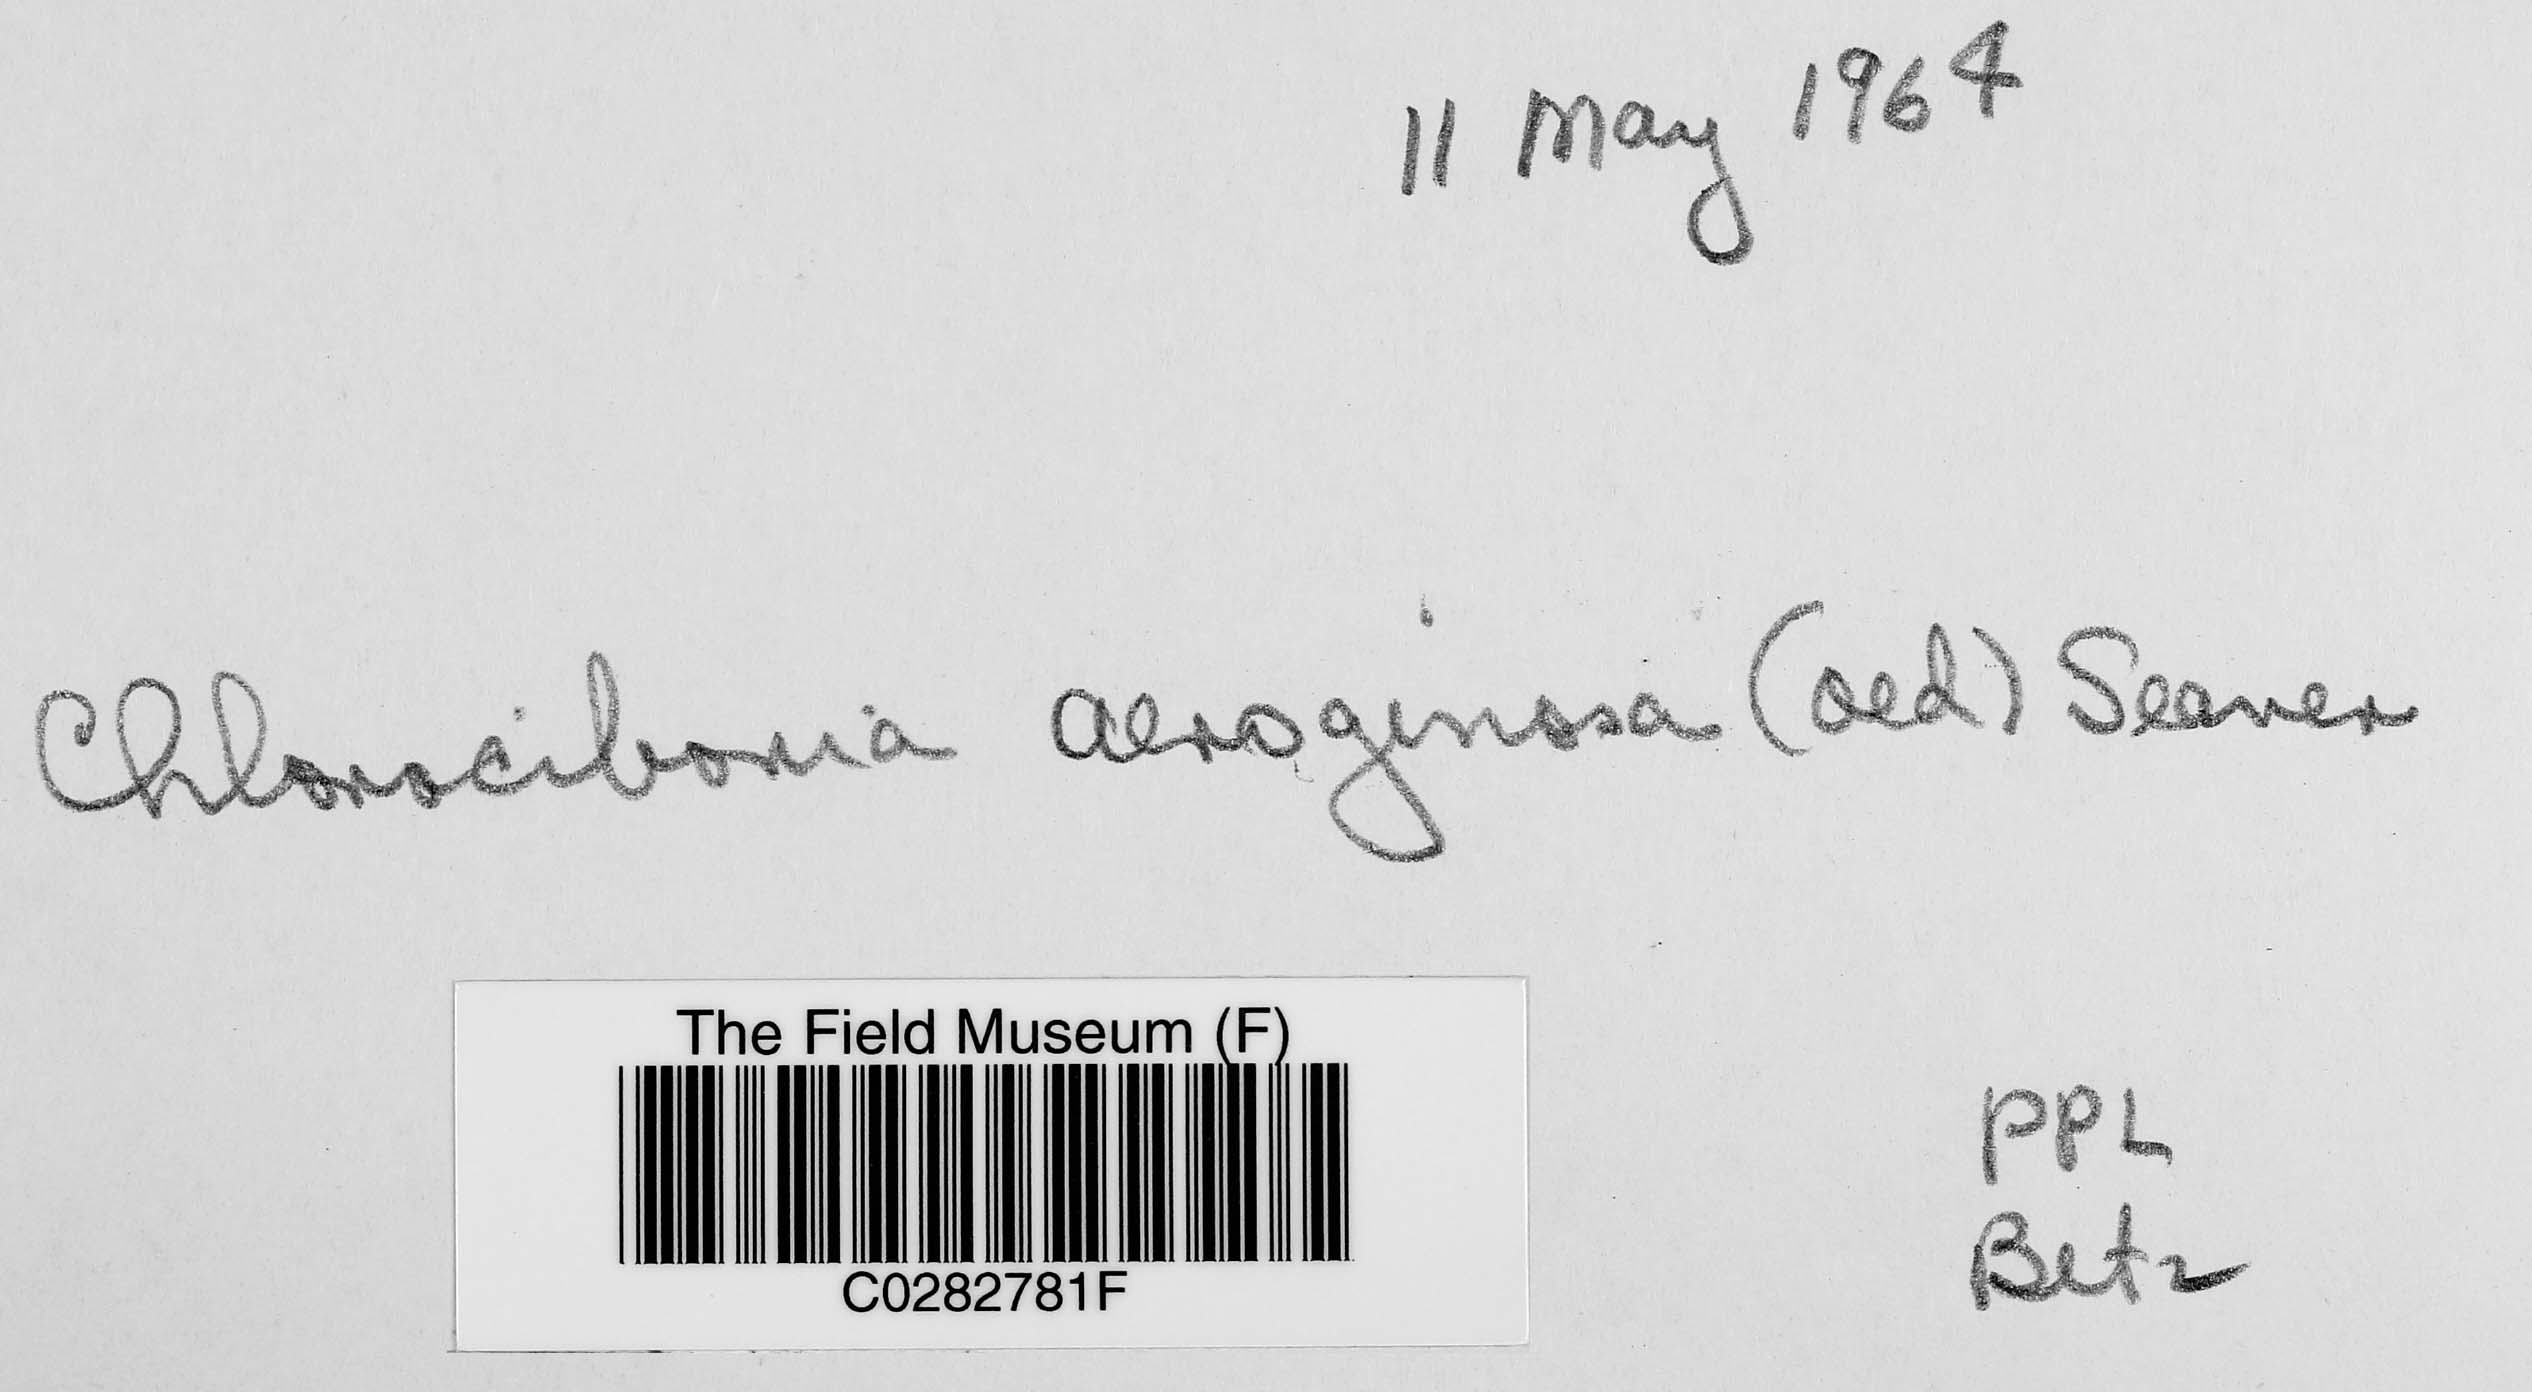 11 May 1964
Chlorociboria aeroginosa (oed) Seaver
The Field Museum (F)
C0282781F
PPL
Betz